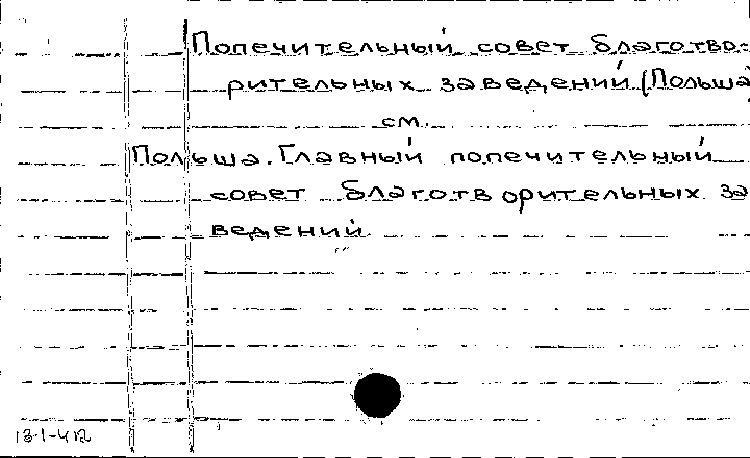 Попечительный совет благотво-
рительных заведений (Польша
см.
Польша. Главный попечительный
совет благотворительных за
ведений
13-1-412